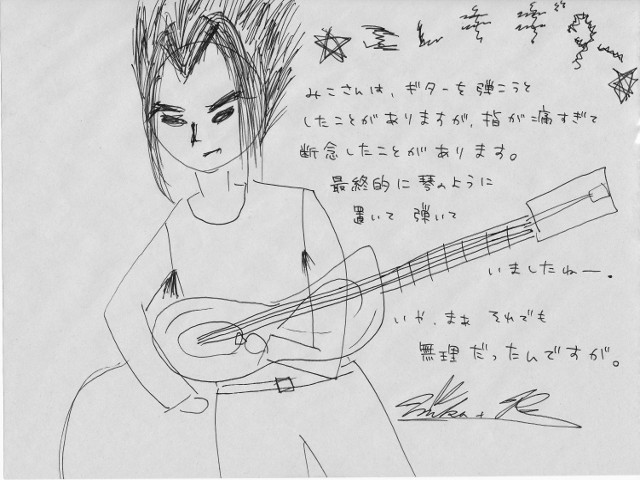 みこさんは、ギターを弾こうと
したことがありますが、指が痛すぎて
断念したことがあります。
最終的に琴のように
置いて弾いて
いましたねー。
いや、まぁ それでも
無理だったんですが。